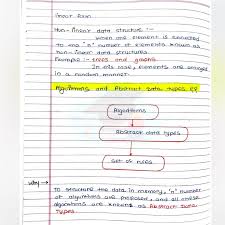 linear form.
Non-linear data structure :-
When one element is connected
to the "n" number of elements known as
non-linear data structures.
Example :- trees and graphs.
In this case, elements are arranged
in a random manner.
Algorithms and Abstract Data types
Algorithms
Abstract data types
Set of rules
Why →
To structure the data in memory, "n" number
of algorithms are proposed, and all these
algorithms are known as Abstract Data
Types.